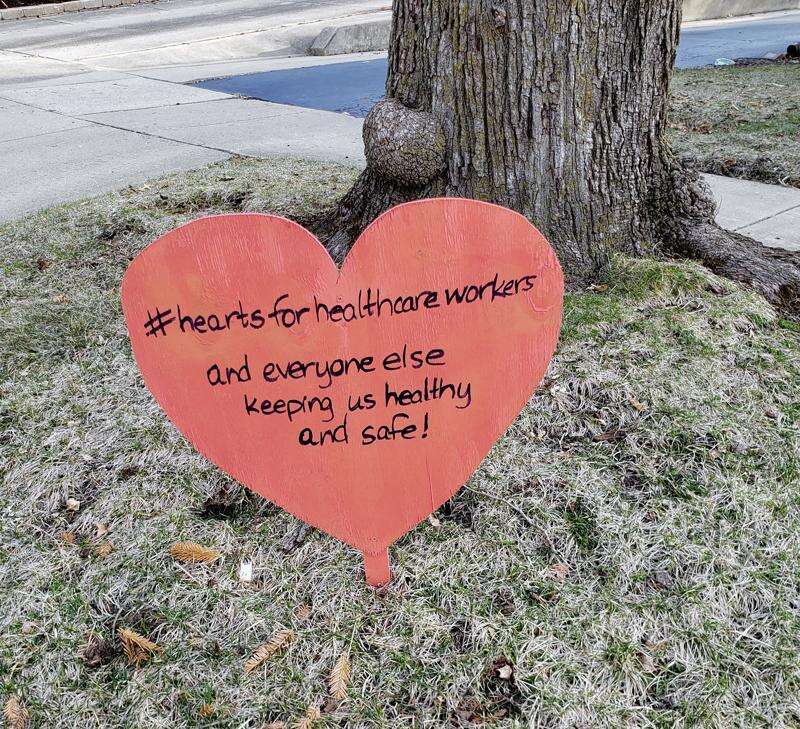 #hearts for healthcare workers
and everyone else
keeping us healthy
and safe!